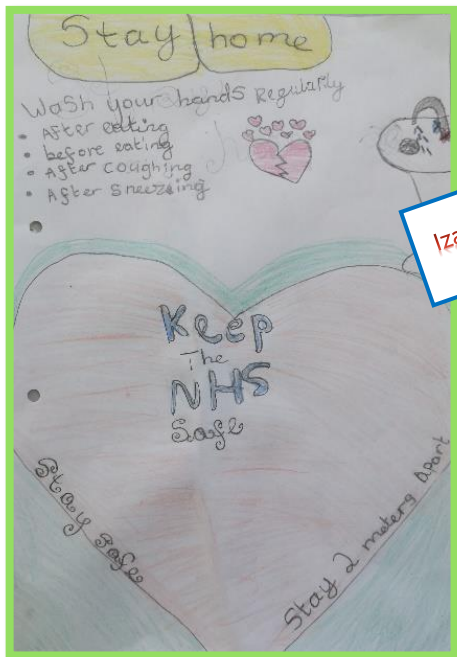 Stay home
Wash your hands Regularly
• After eating
• before eating
• After coughing
• After Sneezing
Keep
The
NHS
Safe
Stay Safe
Stay 2 meters Apart